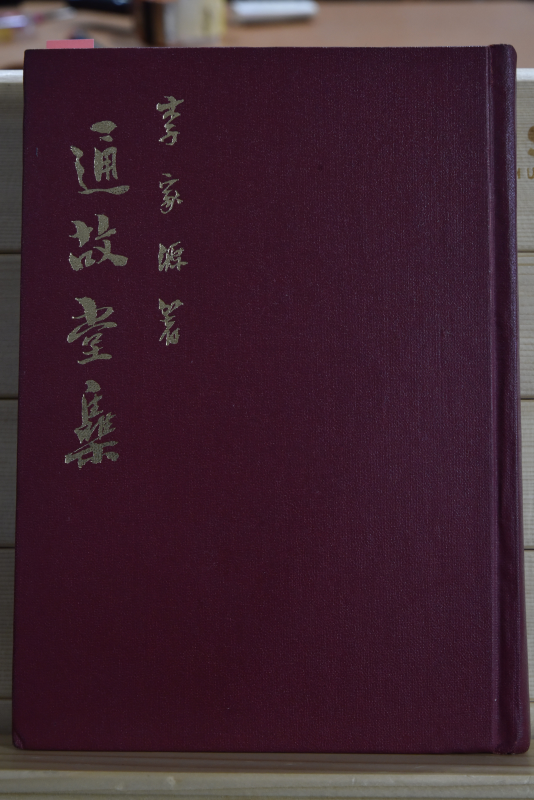 李家源著
通故堂集